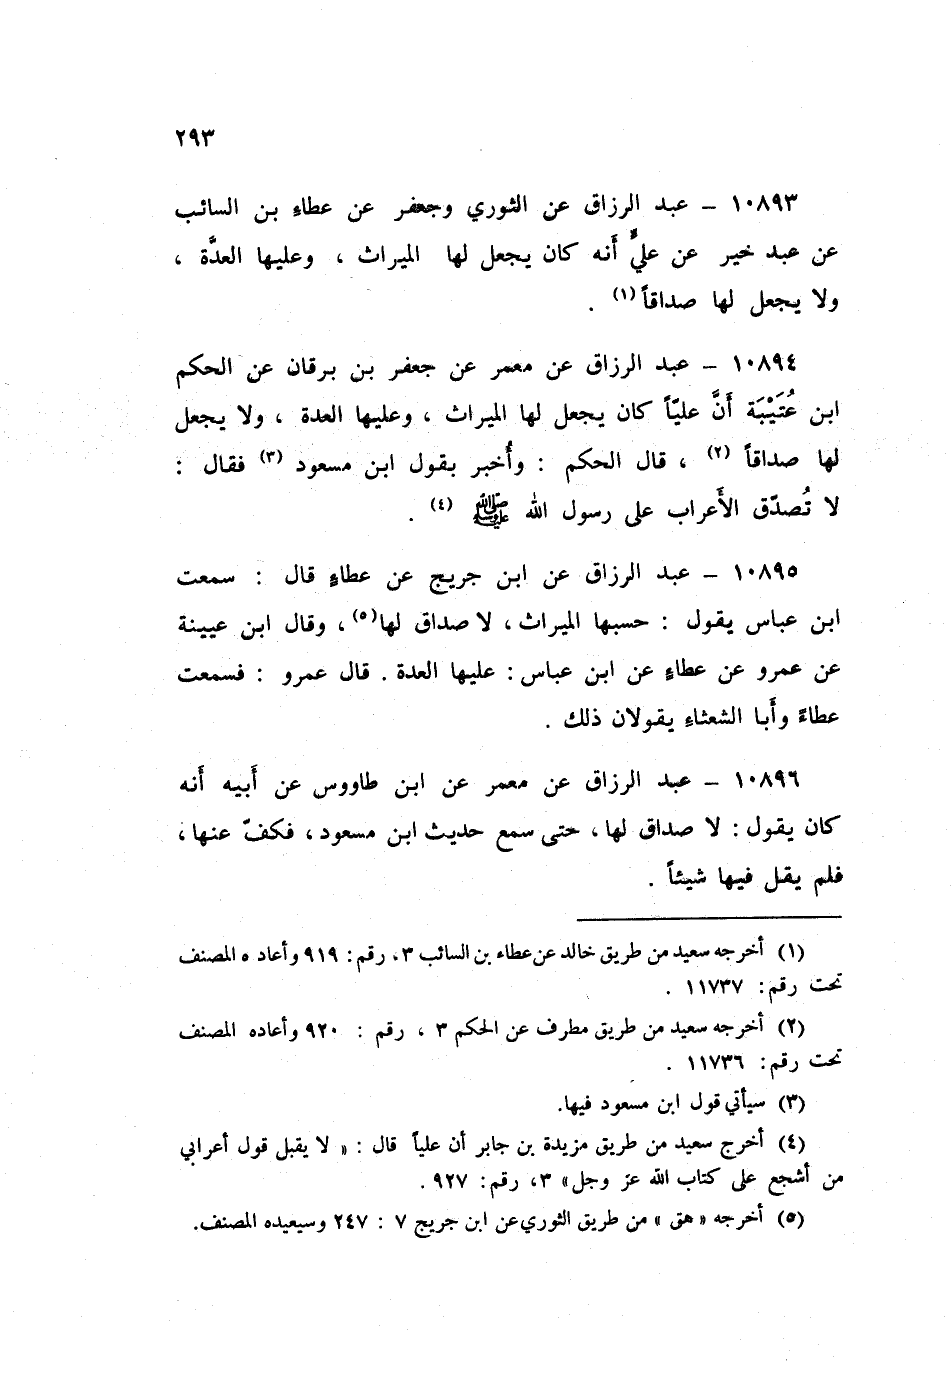 ٢٩٣
١٠٨٩٣ – عبد الرزاق عن الثوري وجعفر عن عطاءِ بن السائب
عن عبد خير عن عليٍّ أَنه كان يجعل لها الميراث ، وعليها العدَّة ،
ولا يجعل لها صداقاً (١) .
١٠٨٩٤ – عبد الرزاق عن معمر عن جعفر بن برقان عن الحكم
ابن عُتَيْبَة أَنَّ عليّاً كان يجعل لها الميراث ، وعليها العدة ، ولا يجعل
لها صداقاً (٢) ، قال الحكم : وأُخبر بقول ابن مسعود (٣) فقال :
لا تُصدّق الأَعراب على رسول الله ﷺ (٤) .
١٠٨٩٥ – عبد الرزاق عن ابن جريج عن عطاءٍ قال : سمعت
ابن عباس يقول : حسبها الميراث ، لا صداق لها(٥) ، وقال ابن عيينة
عن عمرو عن عطاءٍ عن ابن عباس : عليها العدة . قال عمرو : فسمعت
عطاءً وأَبا الشعثاءِ يقولان ذلك .
١٠٨٩٦ – عبد الرزاق عن معمر عن ابن طاووس عن أَبيه أَنه
كان يقول : لا صداق لها ، حتى سمع حديث ابن مسعود ، فكفّ عنها ،
فلم يقل فيها شيئاً .
(١) أخرجه سعيد من طريق خالد عن عطاء بن السائب ٣، رقم: ٩١٩ وأعاده المصنف
تحت رقم: ١١٧٣٧ .
(٢) أخرجه سعيد من طريق مطرف عن الحكم ٣ ، رقم : ٩٢٠ وأعاده المصنف
تحت رقم: ١١٧٣٦ .
(٣) سيأتي قول ابن مسعود فيها.
(٤) أخرج سعيد من طريق مزيدة بن جابر أن علياً قال : « لا يقبل قول أعرابي
من أشجع على كتاب الله عز وجل» ٣، رقم: ٩٢٧ .
(٥) أخرجه « هق » من طريق الثوري عن ابن جريج ٧ : ٢٤٧ وسيعيده المصنف.